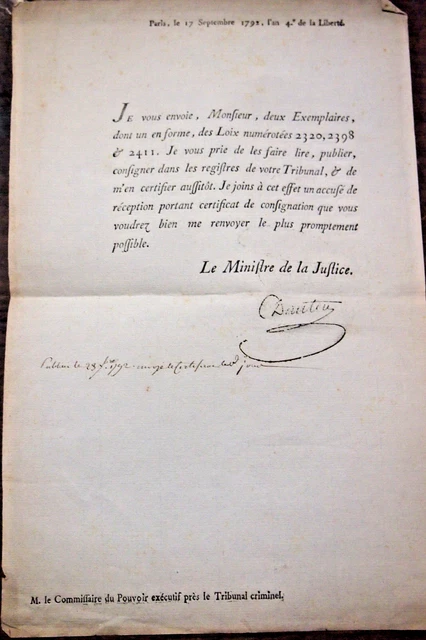 Paris, le 17 Septembre 1792, l'an 4.e de la Liberté.
JE vous envoie, Monſieur, deux Exemplaires,
dont un en forme, des Loix numérotées 2320, 2398
& 2411. Je vous prie de les faire lire, publier,
conſigner dans les regiſtres de votre Tribunal, & de
m'en certifier auſſitôt. Je joins à cet effet un accuſé de
réception portant certificat de conſignation que vous
voudrez bien me renvoyer le plus promptement
poſſible.
Le Miniſtre de la Juſtice.
Danton
Publié le 28 7bre 1792 envoyé le Certificat led. jour
M. le Commiſſaire du Pouvoir exécutif près le Tribunal criminel.